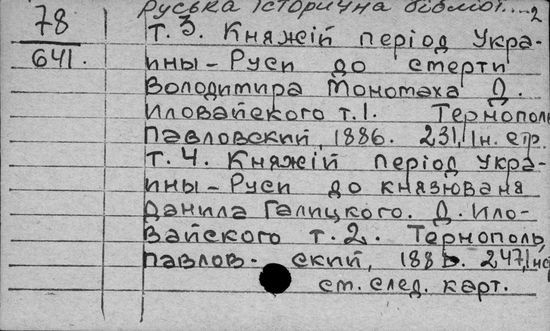 78
641.
Руська історична бібліот....2
т. 3. Княжій період Укра-
ины-Руси до смерти
Володимира Мономаха Д.
Иловайского т.1. Тернополь
Павловский, 1886. 231,1н.стр.
т. 4. Княжій період Укра-
ины-Руси до князюваня
Данила Галицкого. Д. Ило-
вайского т.2. Тернополь,
Павлов- ский, 1886. 247,1нс
см. след. карт.